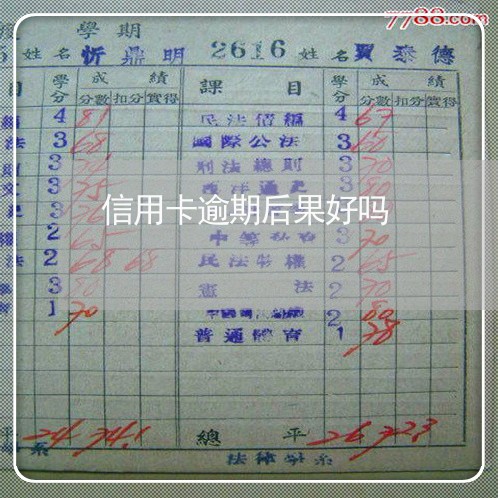 7788.com
學期
姓名 忻鼎明 2616 姓名 賈泰德
目 學分 成績 課目 學分 成績
分數 扣分 實得 分數 扣分 實得
4 81 民法債編 4 67
法 3 68 國際公法 3 60
3 刑法總則 3 70
文 3 75 西洋通史 3 80
3 信用卡逾期后果好吗
權 2 65 3 70
法 2 68 68 民法物權 2 65
3 80 憲法 2 70
1 70 2 80
普通體育 1 78
平 24 74.1 總平 26 72.3
系 法律學系